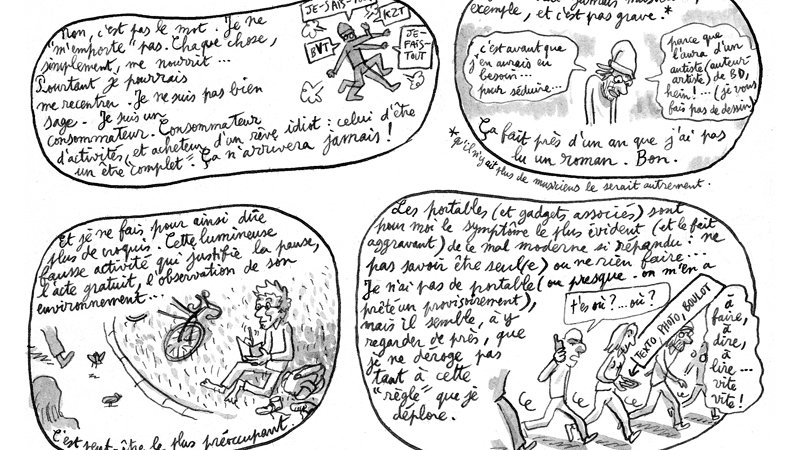 Non, c'est pas le mot. Je ne
"m'emporte" pas. Chaque chose,
simplement, me nourrit...
Pourtant je pourrais
me recentrer. Je ne suis pas bien
sage. Je suis un
consommateur. Consommateur
d'activités, et acheteur d'un rêve idiot : celui d'être
un être "complet". Ça n'arrivera jamais !
JE-SAIS-TOUT
KZT
BVT
JE-
FAIS-
TOUT
exemple, et c'est pas grave.*
c'est avant que
j'en aurais eu
besoin...
pour séduire...
parce que
l'aura d'un
artiste (auteur-
artiste) de BD,
hein!... (je vous
fais pas de dessin)
Ça fait près d'un an que j'ai pas
lu un roman. Bon.
* qu'il n'y ait plus de musiciens le serait autrement.
Et je ne fais pour ainsi dire
plus de croquis. Cette lumineuse
fausse activité qui justifie la pause,
l'acte gratuit, l'observation de son
environnement...
C'est peut-être le plus préoccupant.
Les portables (et gadgets associés) sont
pour moi le symptôme le plus évident (et le fait
aggravant) de ce mal moderne si répandu : ne
pas savoir être seul(e) ou ne rien faire...
Je n'ai pas de portable (ou presque : on m'en a
prêté un provisoirement),
mais il semble, à y
regarder de près, que
je ne déroge pas
tant à cette
"règle" que je
déplore.
t'es où ?... où ?
TEXTO PHOTO BOULOT
à
faire,
à
dire,
à
lire...
vite
vite !